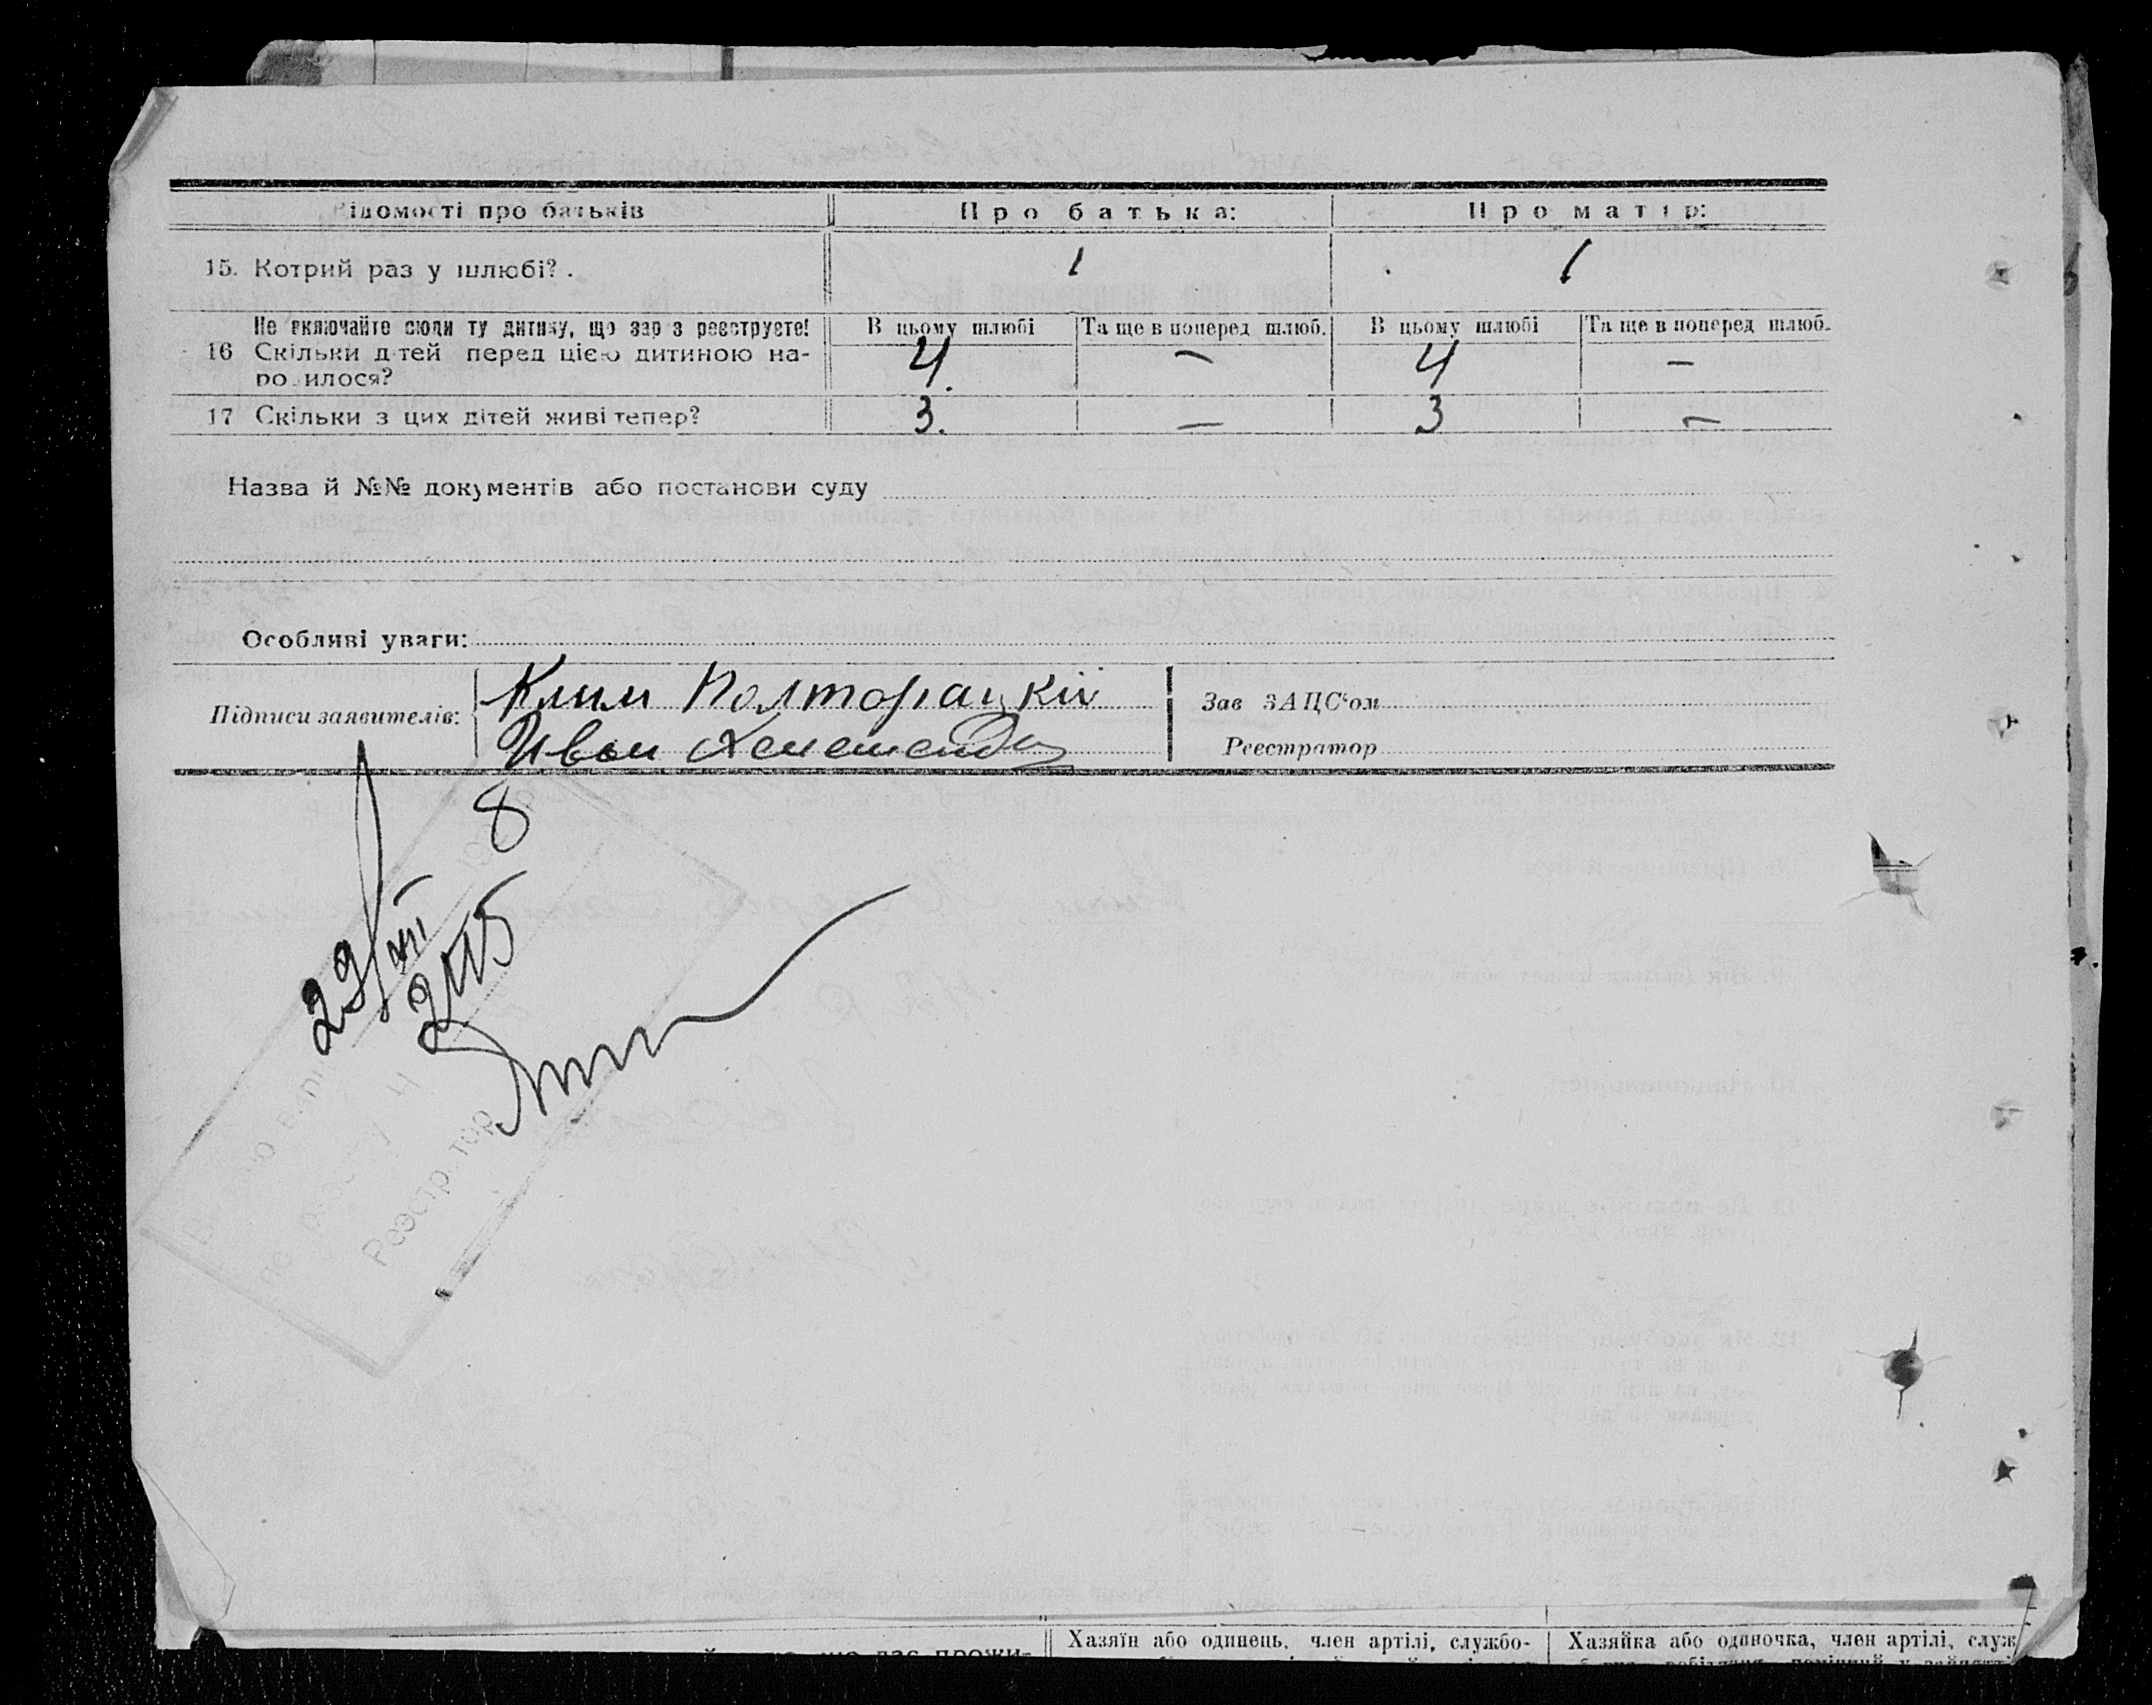 Відомості про батьків Про батька: Про матір:
15. Котрий раз у шлюбі?. 1 1
Не включайте сюди ту дитину, що зараз реєструєте! В цьому шлюбі Та ще в поперед шлюб. В цьому шлюбі Та ще в поперед шлюб.
16 Скільки дітей перед цією дитиною на-
родилося? 4. — 4 —
17 Скільки з цих дітей живі тепер? 3. — 3 —
Назва й №№ документів або постанови суду
Особливі уваги:
Підписи заявителів: Клим Полторацкій
Иван
Зав ЗАЦС'ом
Реєстратор
8
29/VII
2115
Видано
по реєстру Ч
Реєстратор
Хазяїн або одинець, член артілі, службо-
Хазяйка або одиночка, член артілі, служ
що дає прожи-